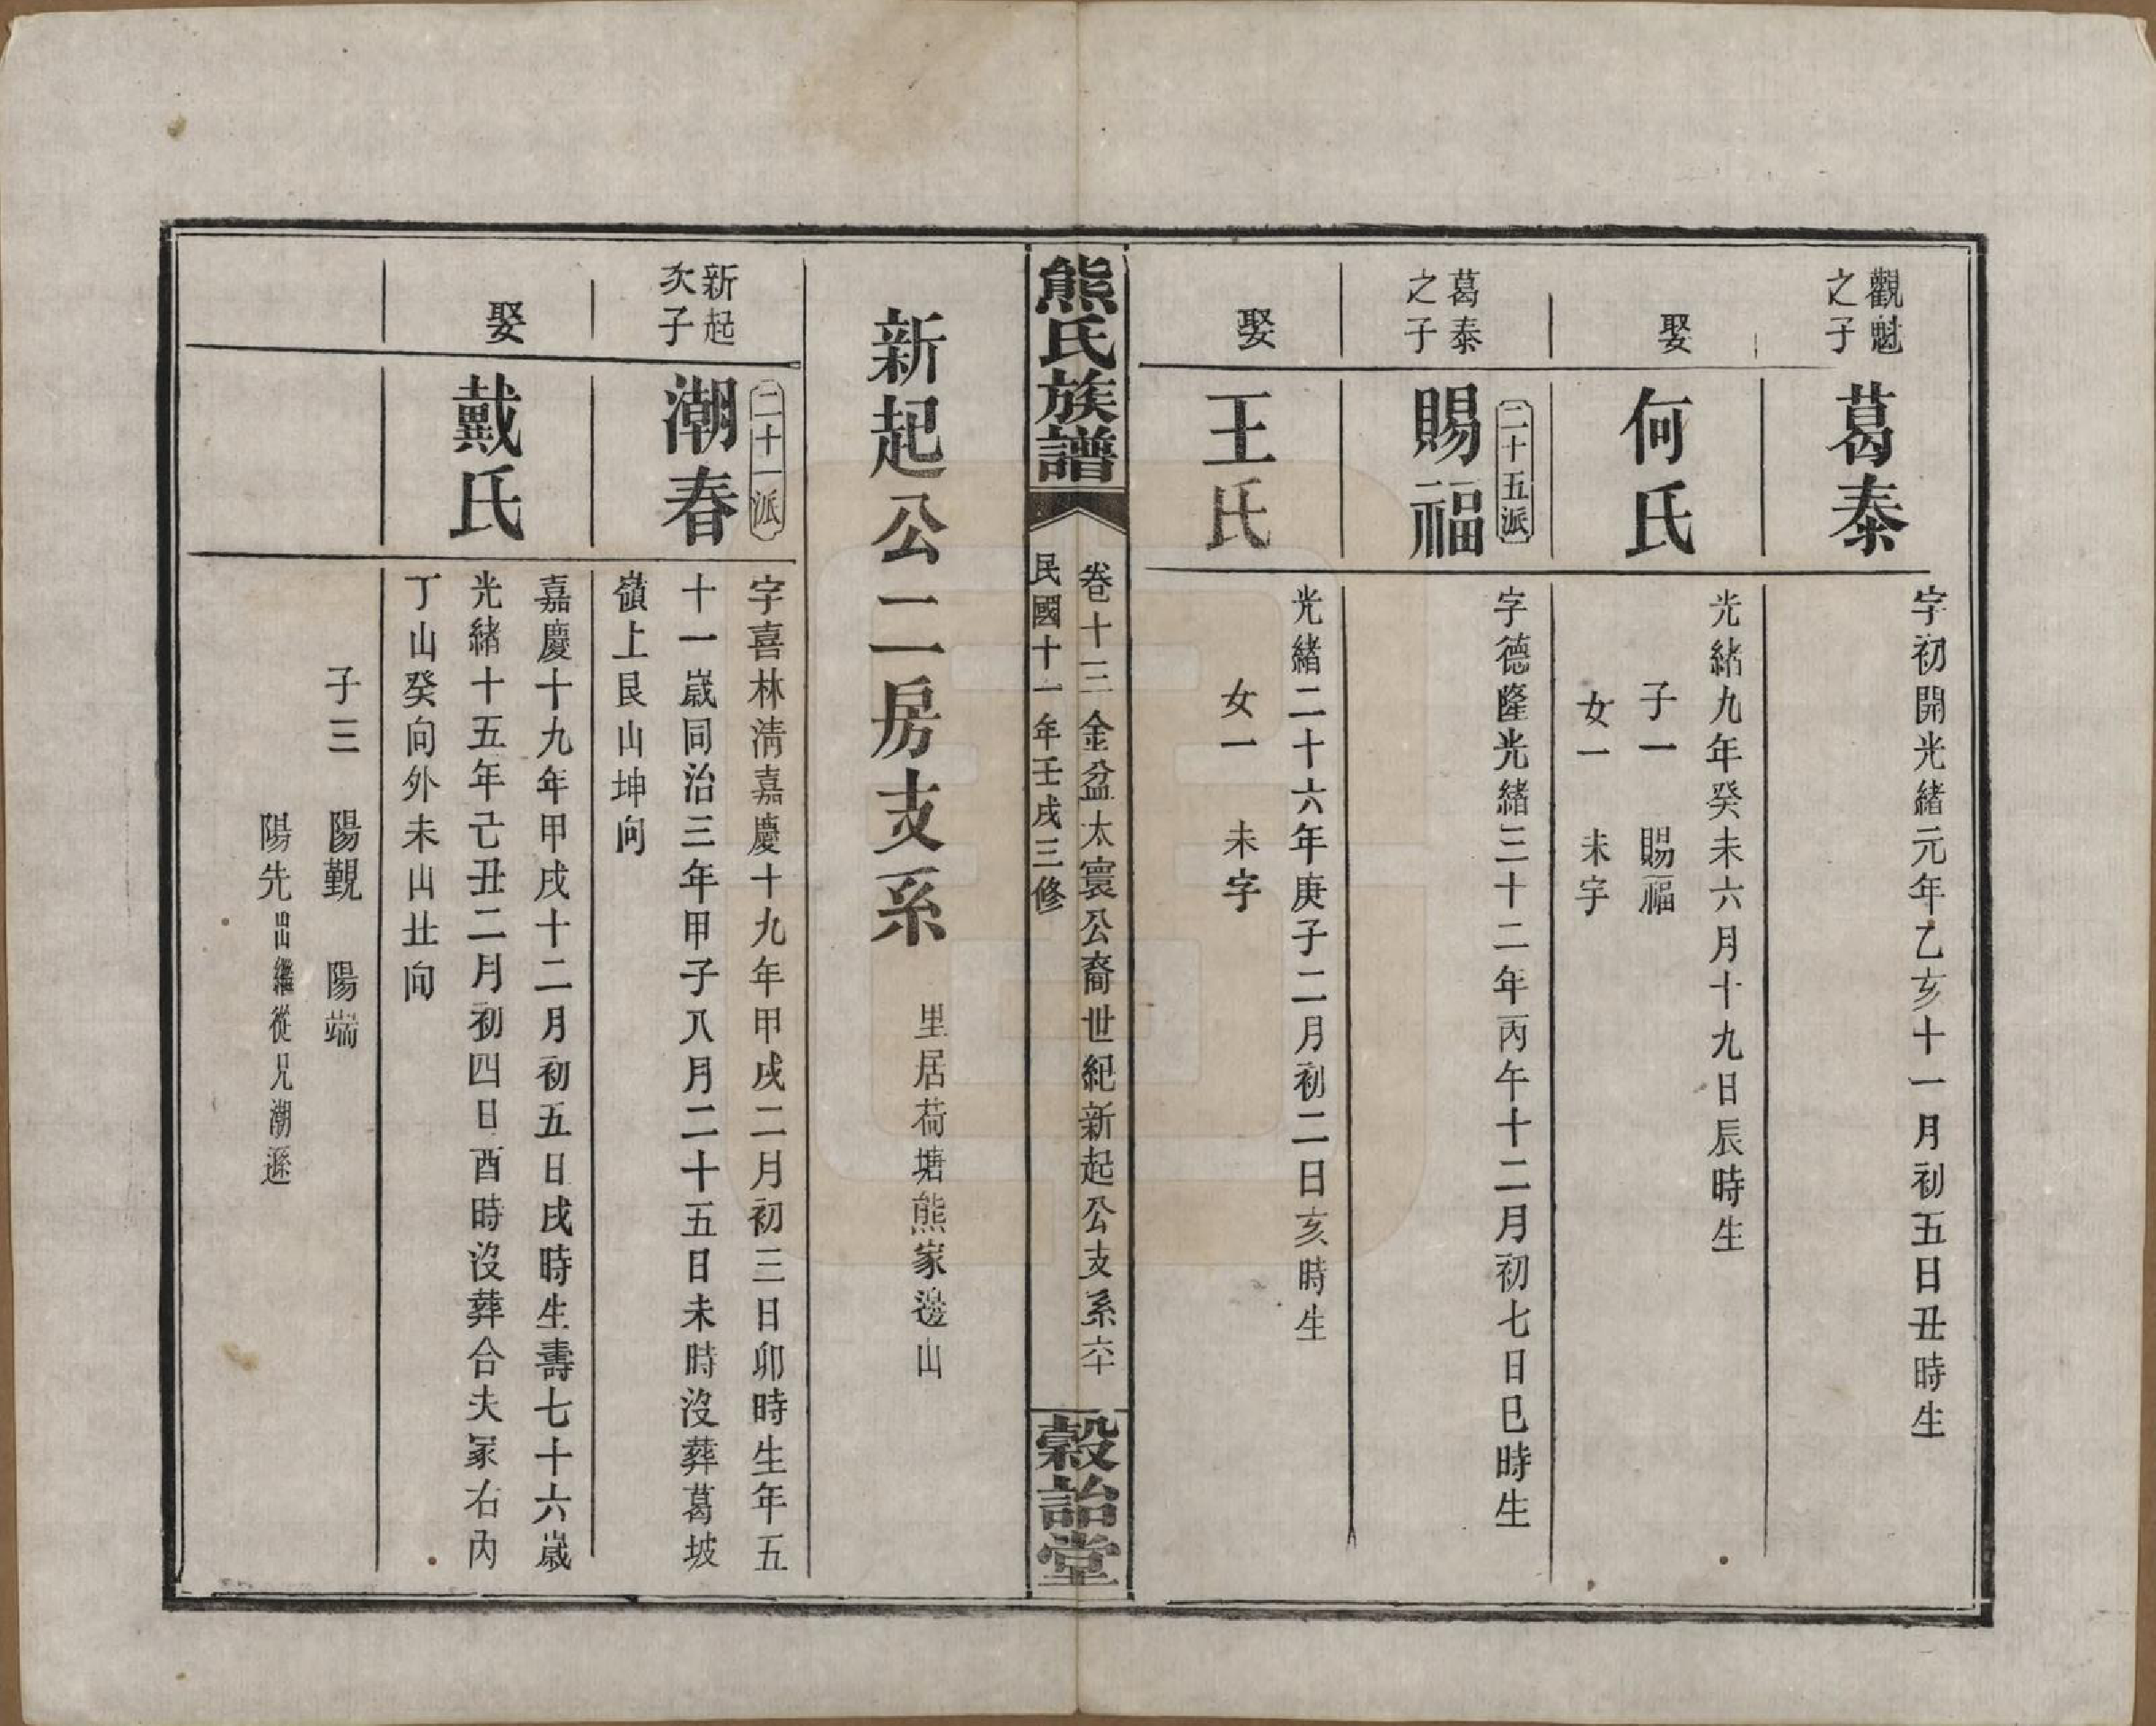 觀魁
之子
葛泰
字初開光緒元年乙亥十一月初五日丑時生
娶
何氏
光緒九年癸未六月十九日辰時生
子一　賜福
女一　未字
葛泰
之子
二十五派
賜福
字德隆光緒三十二年丙午十二月初七日巳時生
娶
王氏
光緒二十六年庚子二月初二日亥時生
女一　未字
熊氏族譜
卷十三金盆太寰公裔世紀新起公支系六十
民國十一年壬戌三修
穀詒堂
新起公二房支系
里居荷塘熊家邊山
新起
次子
二十一派
潮春
字喜林清嘉慶十九年甲戌二月初三日卯時生年五
十一歲同治三年甲子八月二十五日未時沒葬葛坡
嶺上艮山坤向
娶
戴氏
嘉慶十九年甲戌十二月初五日戌時生壽七十六歲
光緒十五年己丑二月初四日酉時沒葬合夫冢右內
丁山癸向外未山丑向
子三　陽覲　陽端
陽先出繼從兄潮遜